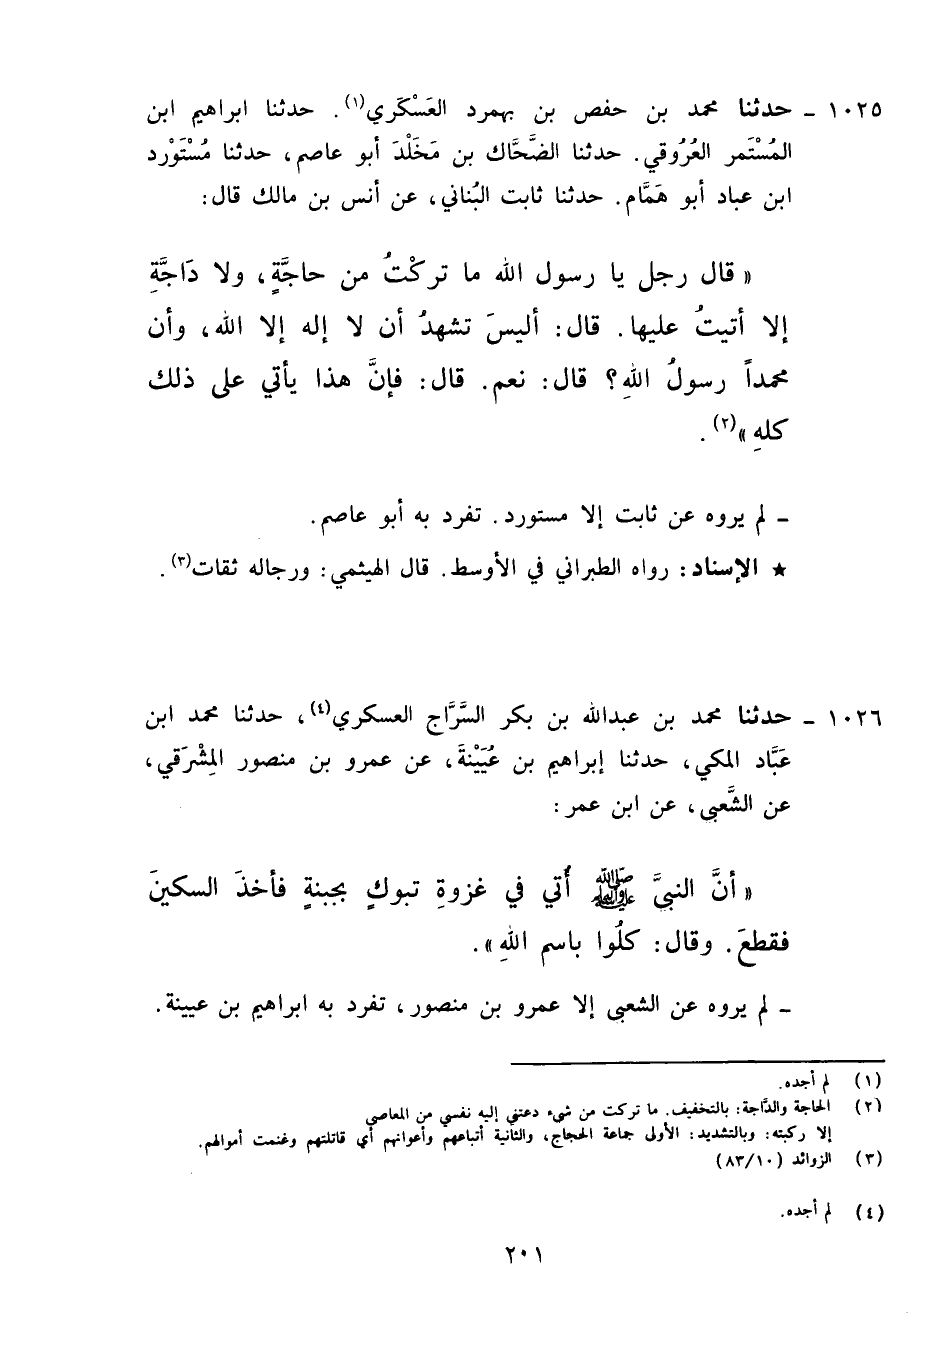 ١٠٢٥ ـ حدثنا محمد بن حفص بن بهمرد العَسْكَري(١). حدثنا ابراهيم ابن
المُسْتَمر العُرُوقي. حدثنا الضَّحَّاك بن مَخَلْدَ أبو عاصم، حدثنا مُسْتَوْرد
ابن عباد أبو هَمَّام. حدثنا ثابت البُناني، عن أنس بن مالك قال:
« قال رجل يا رسول الله ما تركْتُ من حاجَّةٍ، ولا دَاجَّةِ
إلا أتيتُ عليها. قال: أليسَ تشهدُ أن لا إله إلا الله، وأن
محمداً رسولُ اللهِ؟ قال: نعم. قال: فإنَّ هذا يأتي على ذلك
كلهِ »(٢).
ـ لم يروه عن ثابت إلا مستورد. تفرد به أبو عاصم.
★ الإسناد: رواه الطبراني في الأوسط. قال الهيثمي: ورجاله ثقات(٣).
١٠٢٦ ـ حدثنا محمد بن عبدالله بن بكر السَّرَّاج العسكري(٤)، حدثنا محمد ابن
عَبَّاد المكي، حدثنا إبراهيم بن عُيَيْنةَ، عن عمرو بن منصور المِشْرَقي،
عن الشَّعبى، عن ابن عمر:
« أنَّ النبيَّ ﷺ أُتي في غزوةِ تبوكٍ بجبنةٍ فأخذَ السكينَ
فقطعَ. وقال: كلُوا باسم اللهِ ».
ـ لم يروه عن الشعبى إلا عمرو بن منصور، تفرد به ابراهيم بن عيينة.
(١) لم أجده.
(٢) الحاجة والدَّاجة: بالتخفيف. ما تركت من شيء دعتني إليه نفسي من المعاصي
إلا ركبته: وبالتشديد: الأولى جماعة الحجاج، والثانية أتباعهم وأعوانهم أي قاتلتهم وغنمت أموالهم.
(٣) الزوائد (٨٣/١٠)
(٤) لم أجده.
٢٠١